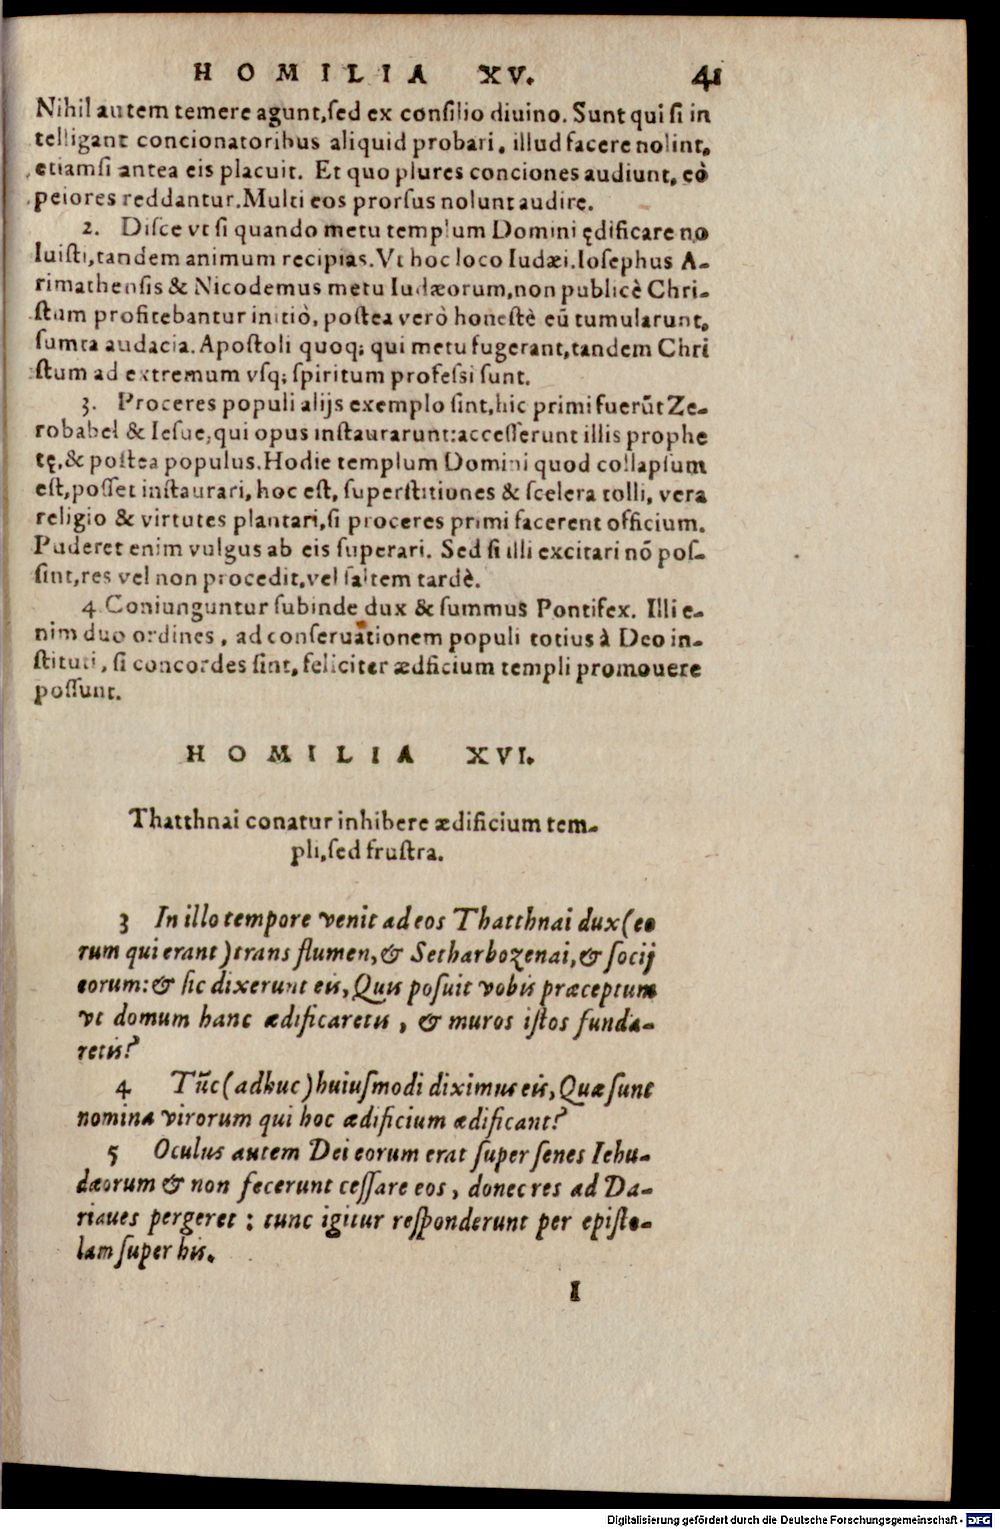 HOMILIA XV. 41
Nihil autem temere agunt,ſed ex conſilio diuino. Sunt qui ſi in
telligant concionatoribus aliquid probari, illud facere nolint,
etiamſi antea eis placuit. Et quo plures conciones audiunt, eò
peiores reddantur. Multi eos prorſus nolunt audire.
2. Diſce vt ſi quando metu templum Domini ędificare no
luiſti,tandem animum recipias. Vt hoc loco Iudæi. Ioſephus A-
rimathenſis & Nicodemus metu Iudæorum,non publicè Chri-
ſtum profitebantur initiò, poſtea verò honeſtè eū tumularunt,
ſumta audacia. Apoſtoli quoq; qui metu fugerant,tandem Chri
ſtum ad extremum vſq; ſpiritum profeſsi ſunt.
3. Proceres populi alijs exemplo ſint,hic primi fuerūt Ze-
robabel & Ieſue,qui opus inſtaurarunt:acceſſerunt illis prophe
tę,& poſtea populus. Hodie templum Domini quod collapſum
eſt,poſſet inſtaurari, hoc eſt, ſuperſtitiones & ſcelera tolli, vera
religio & virtutes plantari,ſi proceres primi facerent officium.
Puderet enim vulgus ab eis ſuperari. Sed ſi illi excitari nō poſ-
ſint,res vel non procedit,vel ſaltem tardè.
4. Coniunguntur ſubinde dux & ſummus Pontifex. Illi e-
nim duo ordines, ad conſeruationem populi totius à Deo in-
ſtituti, ſi concordes ſint, feliciter ædficium templi promouere
poſſunt.
HOMILIA XVI.
Thatthnai conatur inhibere ædificium tem-
pli,ſed fruſtra.
3 In illo tempore venit ad eos Thatthnai dux (eo
rum qui erant) trans flumen, & Setharbozenai, & ſocij
eorum: & ſic dixerunt eis, Quis poſuit vobis præceptum
vt domum hanc ædificaretis, & muros iſtos funda-
retis?
4 Tūc (adhuc) huiuſmodi diximus eis, Quæ ſunt
nomina virorum qui hoc ædificium ædificant?
5 Oculus autem Dei eorum erat ſuper ſenes Iehu-
dæorum & non fecerunt ceſſare eos, donec res ad Da-
riaues pergeret: tunc igitur reſponderunt per epiſto-
lam ſuper his.
I
Digitalisierung gefördert durch die Deutsche Forschungsgemeinschaft - DFG